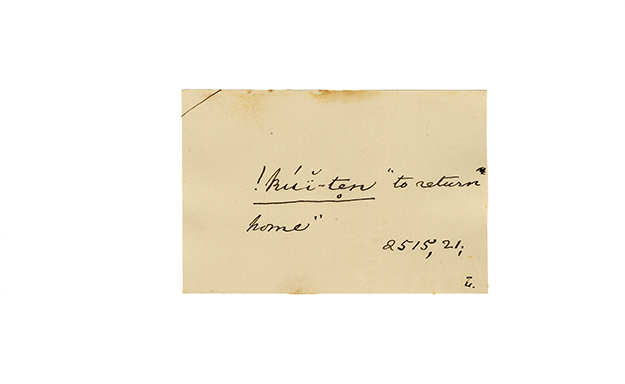 !kúï̆-tẹn "to return
home"
2515, 21;
L.